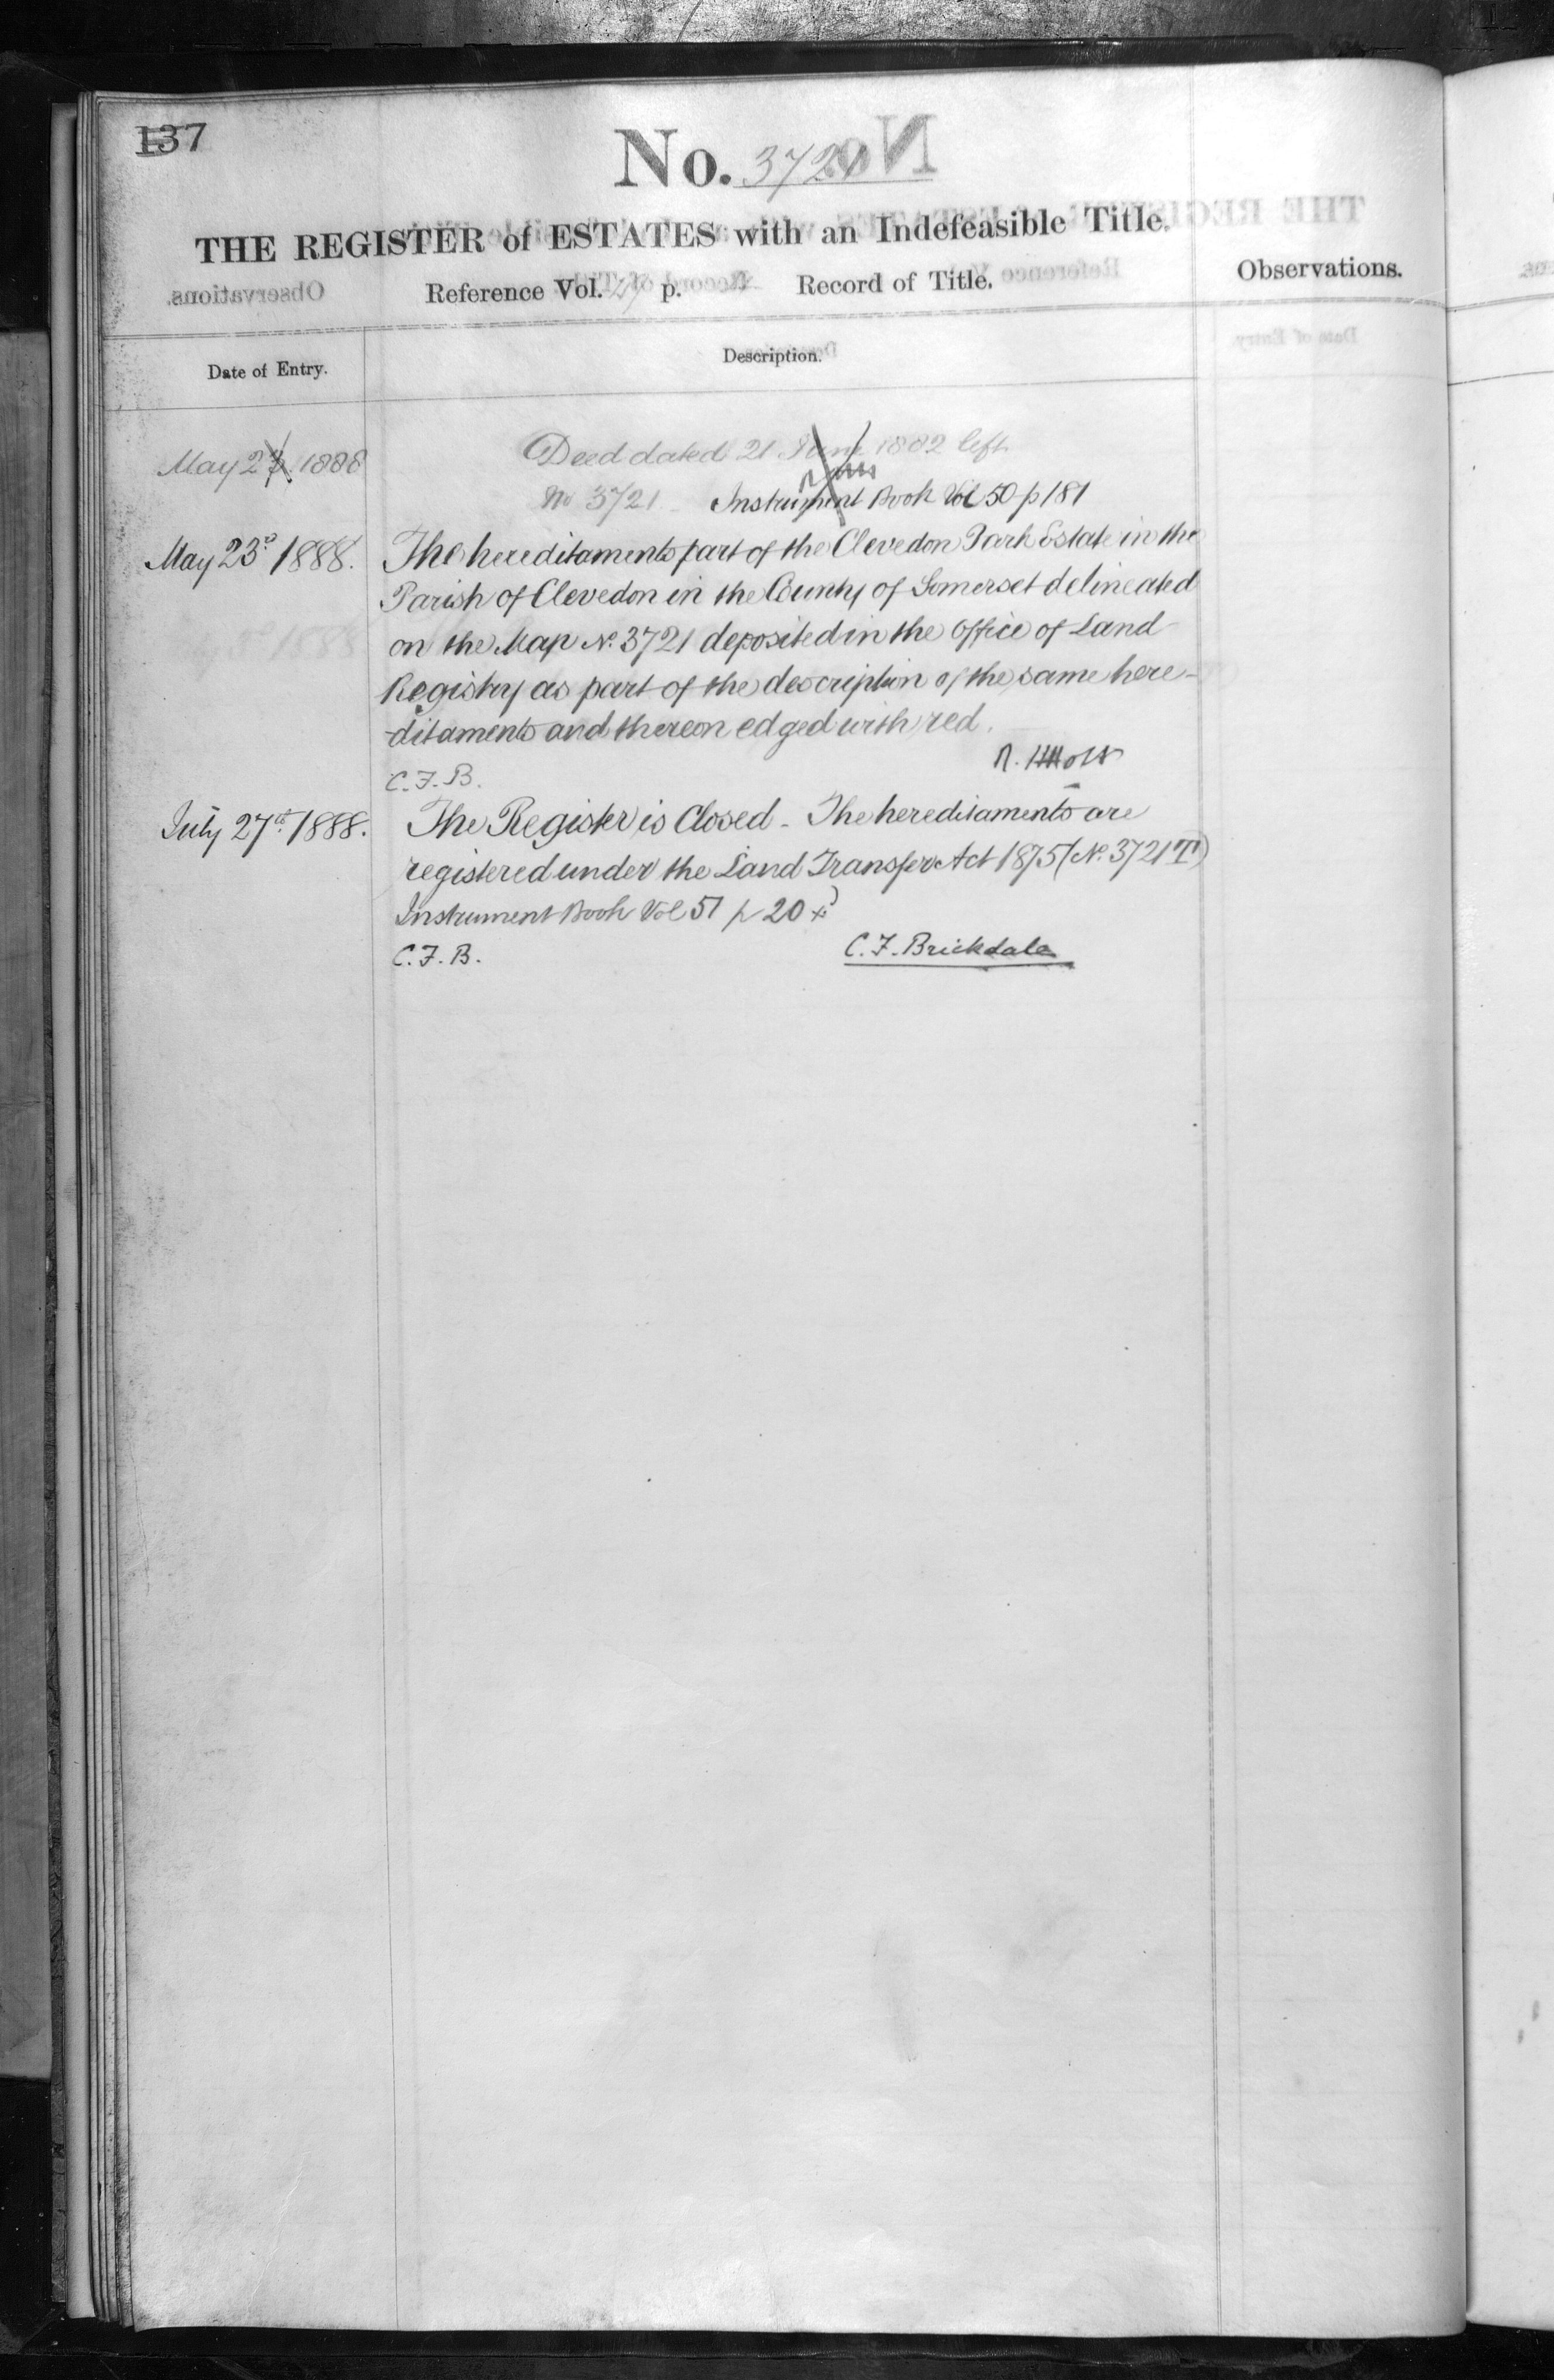 137
No. 3721
THE REGISTER of ESTATES with an Indefeasible Title.
Reference Vol. p. Record of Title.
Observations.
Date of Entry.
Description.
May 23 1888
Deed dated 21 June 1882 left
No 3721 Instrument Book Vol 50 p 181
May 23d 1888.
The hereditaments part of the Clevedon Park Estate in the
Parish of Clevedon in the County of Somerset delineated
on the Map No. 3721 deposited in the Office of Land
Registry as part of the description of the same here-
-ditaments and thereon edged with red.
R. H Holt
C.F.B.
July 27th 1888.
The Register is Closed - The hereditaments are
registered under the Land Transfer Act 1875 (No. 3721 T)
Instrument Book Vol 51 p 20
C.F.B.
C.F. Brickdale